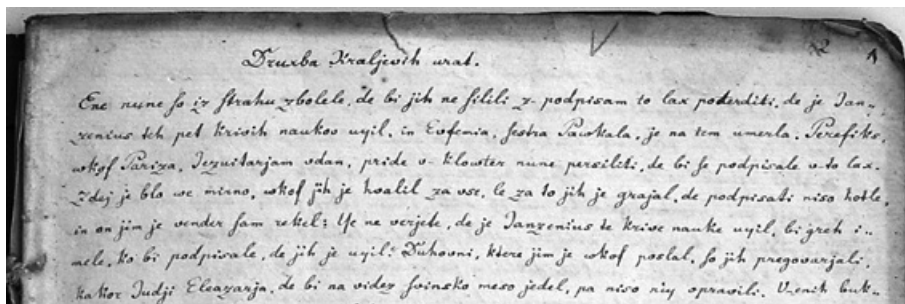 Druxba Kraljevih urat.
Ene nune so iz strahu zbolele, de bi jih ne silili z- podpisam to lax poterditi, de je Jan-
zenius teh pet krivih naukov uyil, in Eufemia, sestra Paskala, je na tem umerla. Perefiks,
wkof Pariza, Jezuitarjam vdan, pride v- klowter nune persiliti, de bi se podpisale v to lax.
Zdej je blo we mirno, wkof jih je hvalil za vse, le za to jih je grajal, de podpisati niso hotle,
in on jim je vender sam rekel: Ye ne verjete, de je Janzenius te krive nauke uyil, bi greh i-
mele, ko bi podpisale, de jih je uyil. Duhovni, ktere jim je wkof poslal, so jih pregovarjali,
kakor Judji Eleazarja, de bi na videz svinsko meso jedel, pa niso niy opravili. V enih buk-